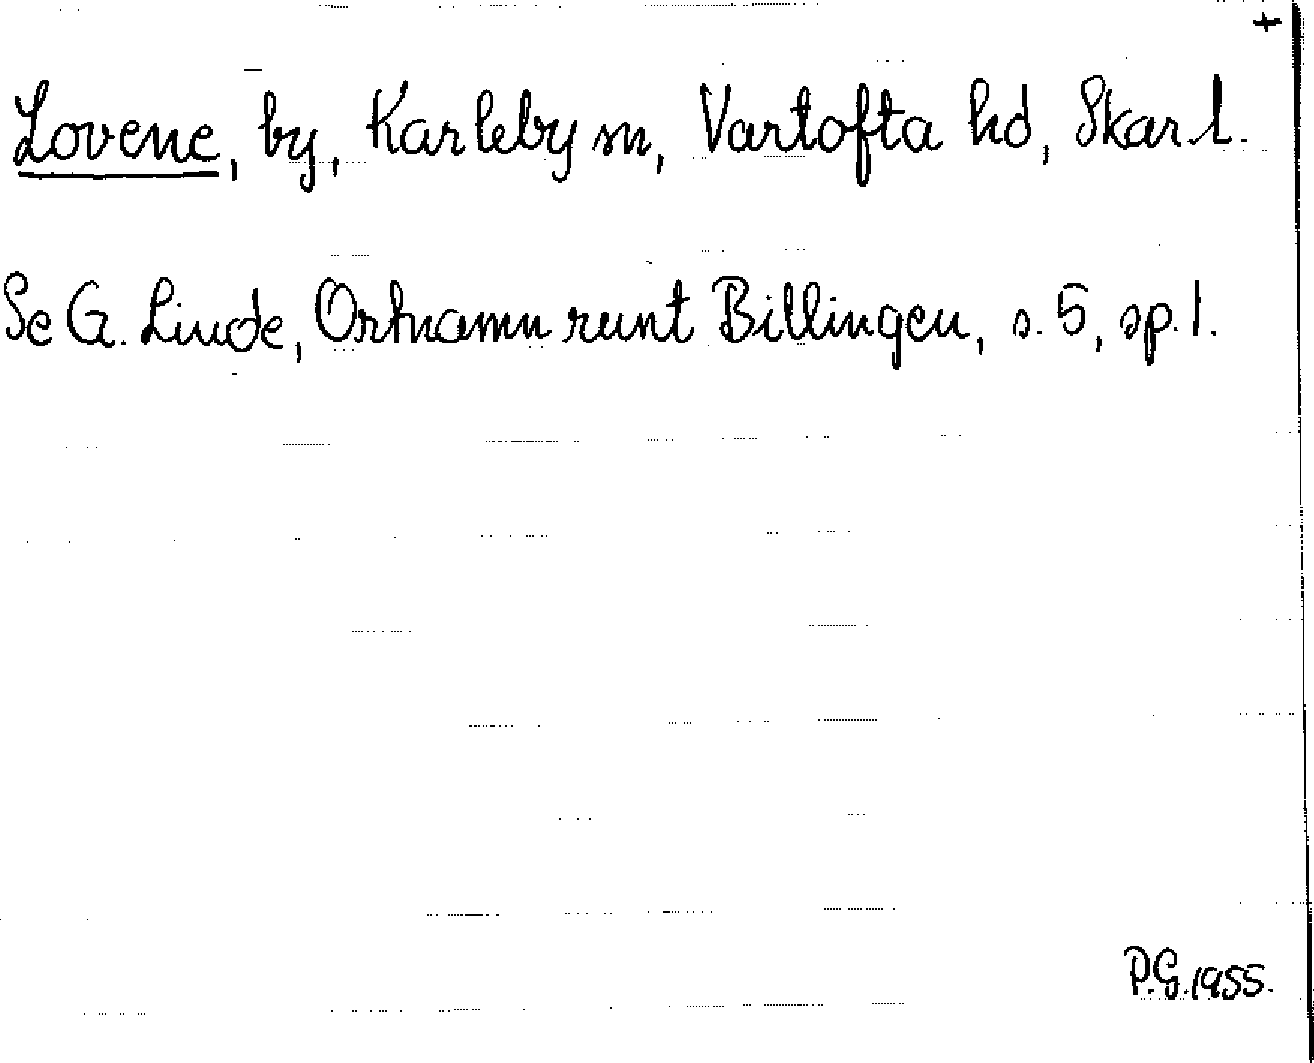 +
Lovene, by, Karleby sn, Vartofta hd, Skar. l.
Se G. Linde, Ortnamn runt Billingen, s. 5, sp. 1.
P.G. 1955.